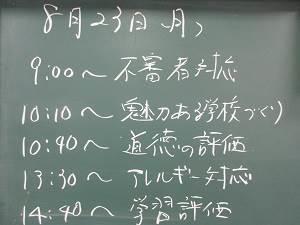 8月23日(月)
9:00～不審者対応
10:10～魅力ある学校づくり
10:40～道徳の評価
13:30～アレルギー対応
14:40～学習評価